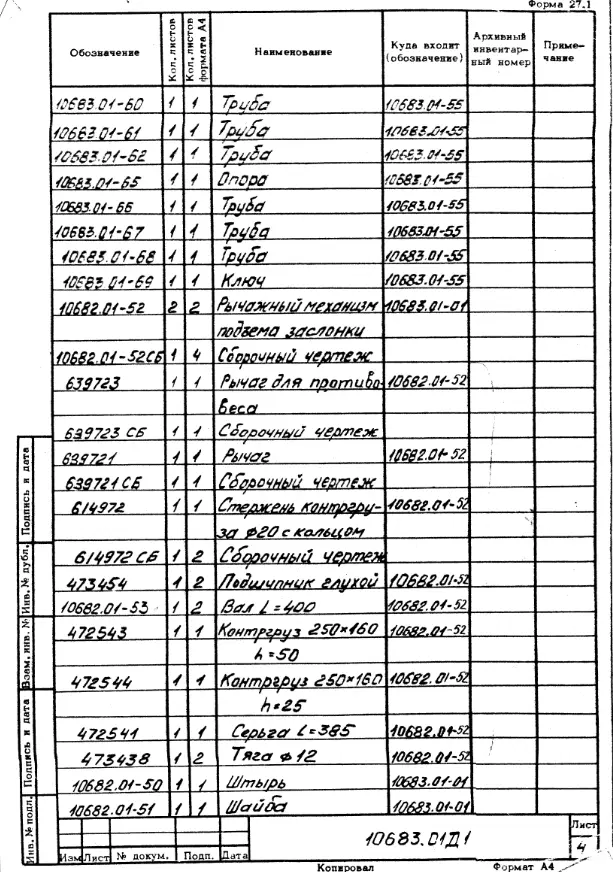 Форма 27.1
Обозначение Кол. листов Кол. листов формата А4 Наименование Куда входит (обозначение) Архивный инвентарный номер Примечание
10683.01-60 1 1 Труба 10683.01-55
10683.01-61 1 1 Труба 10683.01-55
10683.01-62 1 1 Труба 10683.01-55
10683.01-65 1 1 Опора 10683.01-55
10683.01-66 1 1 Труба 10683.01-55
10683.01-67 1 1 Труба 10683.01-55
10683.01-68 1 1 Труба 10683.01-55
10683.01-69 1 1 Ключ 10683.01-55
10682.01-52 2 2 Рычажный механизм 10683.01-01
подъема заслонки
10682.01-52СБ 1 4 Сборочный чертеж
639723 1 1 Рычаг для противо- 10682.01-52
веса
639723 СБ 1 1 Сборочный чертеж
639721 1 1 Рычаг 10682.01-52
639721 СБ 1 1 Сборочный чертеж
614972 1 1 Стержень контргру- 10682.01-52
за ф20 с кольцом
614972 СБ 1 2 Сборочный чертеж
473454 1 2 Подшипник глухой 10682.01-52
10682.01-53 1 2 Вал L=400 10682.01-52
472543 1 1 Контргруз 250×160 10682.01-52
h=50
472544 1 1 Контргруз 250×160 10682.01-52
h=25
472541 1 1 Серьга L=385 10682.01-52
473438 1 2 Тяга ф12 10682.01-52
10682.01-50 1 1 Штырь 10683.01-01
10682.01-51 1 1 Шайба 10683.01-01
Подпись и дата
Инв. № дубл.
Взам. инв. №
Подпись и дата
Инв. № подл.
10683.01Д1
Лист
4
Изм Лист № докум. Подп. Дата
Копировал Формат А4